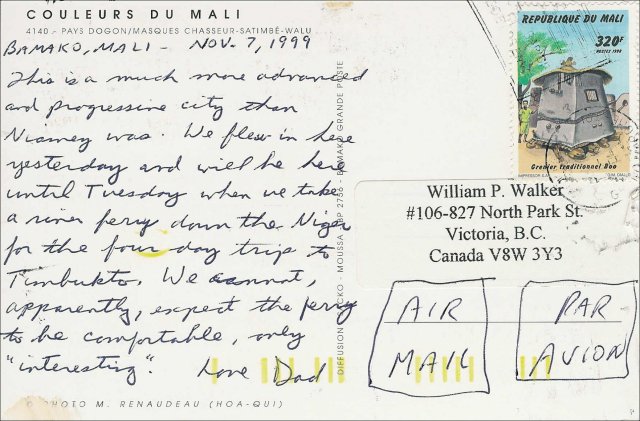 COULEURS DU MALI
4140.- PAYS DOGON/MASQUES CHASSEUR-SATIMBÉ-WALU
BAMAKO, MALI - NOV. 7, 1999
This is a much more advanced
and progressive city than
Niamey was. We flew in here
yesterday and will be here
until Tuesday when we take
a river ferry down the Niger
for the four day trip to
Timbukto. We cannot,
apparently, expect the ferry
to be comfortable, only
"interesting". Love Dad
PHOTO M. RENAUDEAU (HOA-QUI)
MOUSSA BP 2756 - BAMAKO GRANDE POSTE
REPUBLIQUE DU MALI
320F
POSTES 1998
Grenier traditionnel Boo
William P. Walker
#106-827 North Park St.
Victoria, B.C.
Canada V8W 3Y3
AIR
MAIL
PAR
AVION